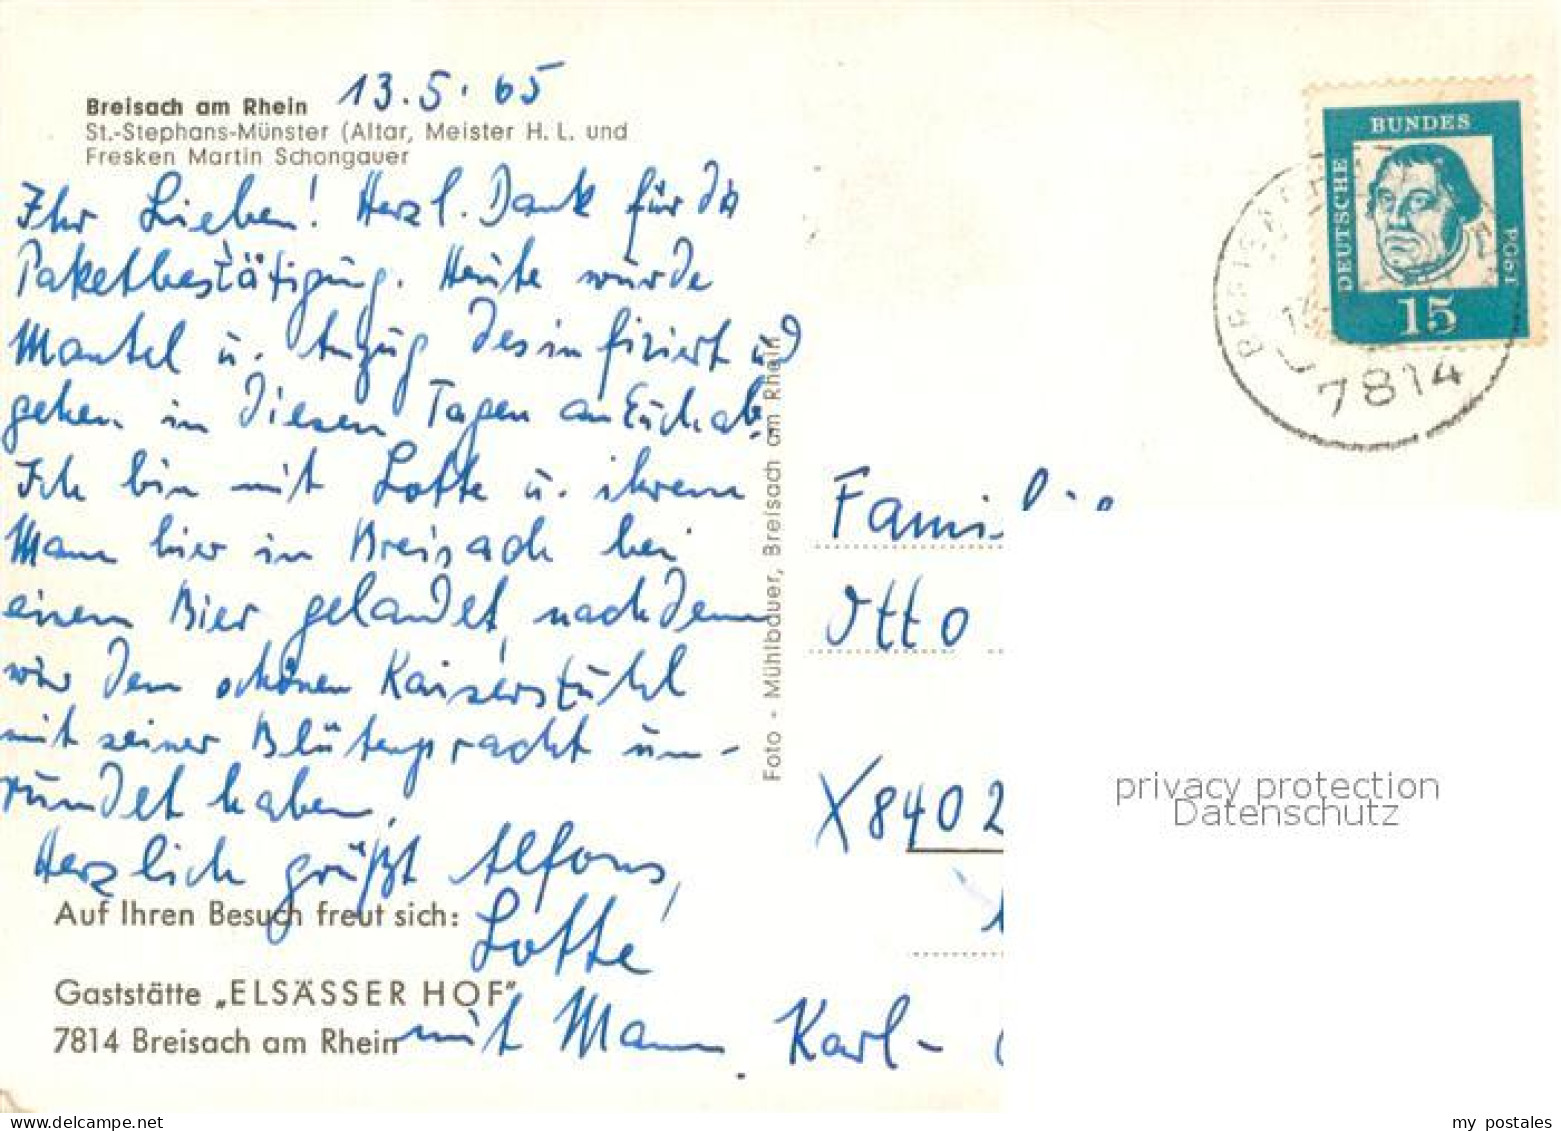 Breisach am Rhein 13.5.65
St.-Stephans-Münster (Altar, Meister H. L. und
Fresken Martin Schongauer
Ihr Lieben! Herzl. Dank für die
Paketbestätigung. Heute wurde
Mantel u. Anzug desinfiziert und
gehen in diesen Tagen an Euch ab.
Ich bin mit Lotte u. ihrem
Mann hier in Breisach bei
einem Bier gelandet, nachdem
wir den schönen Kaiserstühl
mit seiner Blütenpracht um-
rundet haben.
Herzlich grüßt Alfons,
Lotte
mit Mann Karl-
Auf Ihren Besuch freut sich:
Gaststätte „ELSÄSSER HOF"
7814 Breisach am Rhein
Foto - Mühlbauer, Breisach am Rhein
DEUTSCHE
BUNDES
POST
15
7814
Familie
Otto
X8402
privacy protection
Datenschutz
my postales